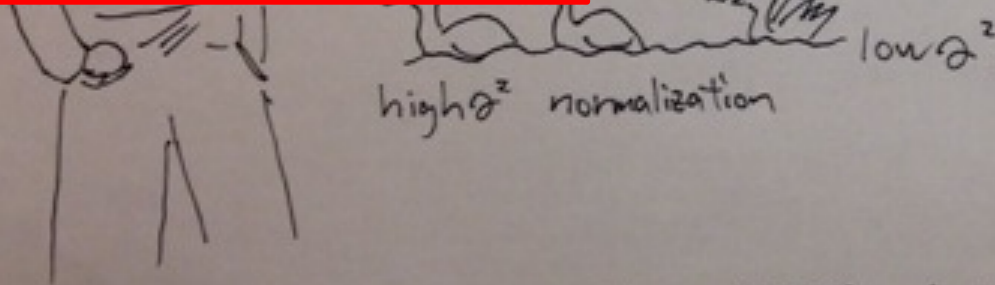 low ∂²
high ∂² normalization